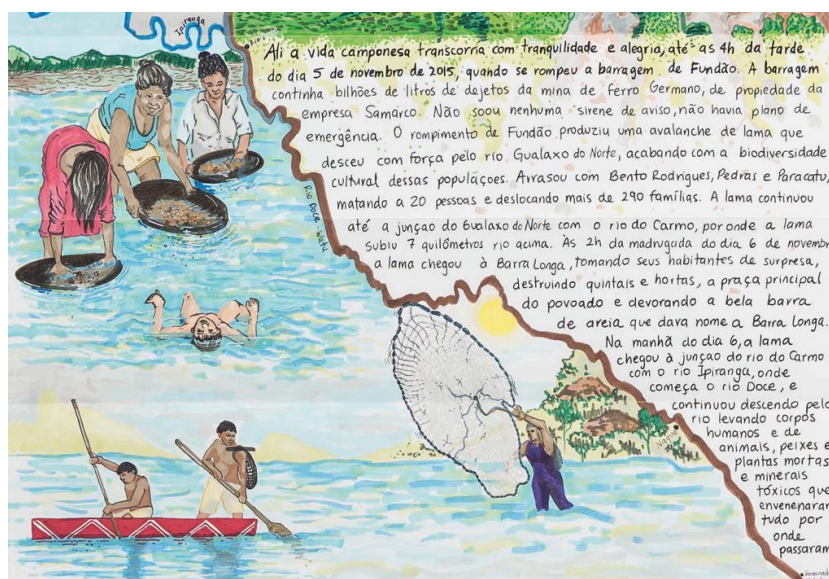 Ipiranga
Ali a vida camponesa transcorria com tranquilidade e alegria, até as 4h da tarde
do dia 5 de novembro de 2015, quando se rompeu a barragem de Fundão. A barragem
continha bilhões de litros de dejetos da mina de ferro Germano, de propiedade da
empresa Samarco. Não soou nenhuma sirene de aviso, não havia plano de
emergência. O rompimento de Fundão produziu uma avalanche de lama que
desceu com força pelo rio Gualaxo do Norte, acabando com a biodiversidade
cultural dessas populaçoes. Arrasou com Bento Rodrigues, Pedras e Paracatu,
matando a 20 pessoas e deslocando mais de 290 famílias. A lama continuou
até a junçao do Gualaxo do Norte com o rio do Carmo, por onde a lama
subiu 7 quilômetros rio acima. Às 2h da madrugada do dia 6 de novembr
a lama chegou à Barra Longa, tomando seus habitantes de surpresa,
destruindo quintais e hortas, a praça principal
do povoado e devorando a bela barra
de areia que dava nome a Barra Longa.
Na manhã do dia 6, a lama
chegou à junçao do rio do Carmo
com o rio Ipiranga, onde
começa o rio Doce, e
continuou descendo pelo
rio levando corpos
humanos e de
animais, peixes e
plantas mortas
e minerais
tóxicos que
envenenaram
tudo por
onde
passaram
Rio Doce - Watu